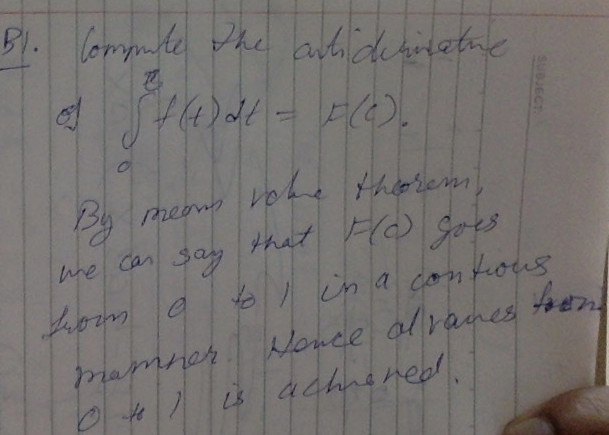 B1. Compute the antiderivative
of ∫₀ᶜ f(t) dt = F(C).
By mean value theorem,
we can say that F(C) goes
from 0 to 1 in a continous
manner. Hence al values from
0 to 1 is achieved.
SUBJECT: